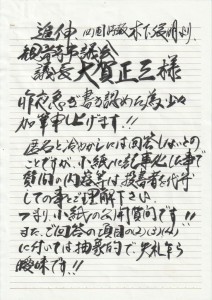 追伸
観音寺市議会
議長 大賀正三様
昨夜急ぎ書き認めた為少々
加筆申し上げます!!
匿名と冷やかしには回答しないとの
ことですが、小紙に記事化した事で
質問の内容等は、投書者を代弁
しての事とご理解下さい。
つまり、小紙の公開質問です!!
また、ご回答の項目の(2)(3)(4)
に付いては抽象的で、失礼乍ら
曖昧です!!